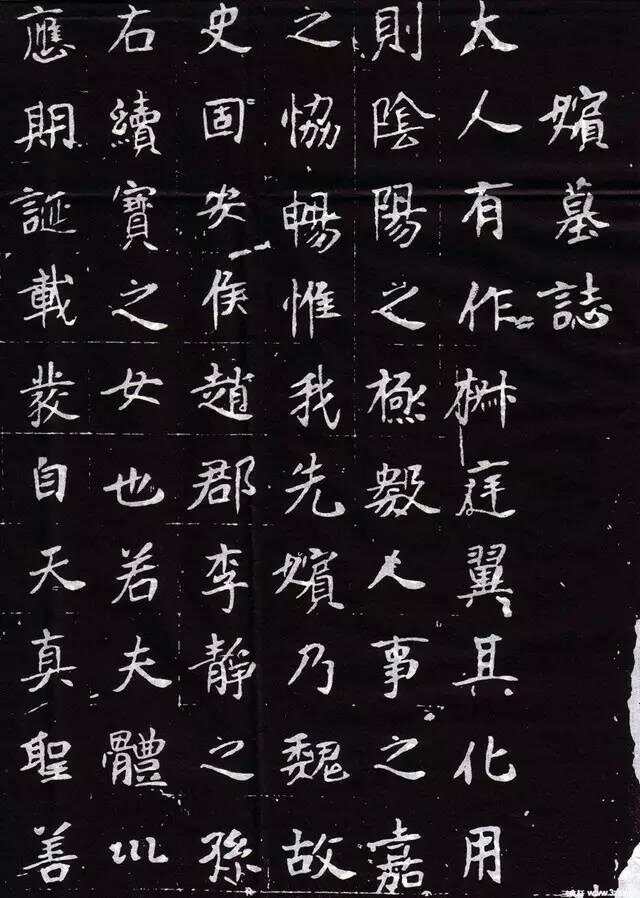 嬪墓誌
大人有作椒庭翼其化用
則陰陽之極數人事之嘉
之恊暢惟我先嬪乃魏故
史固安侯趙郡李靜之孫
右續寶之女也若夫體巛
應期誕載發自天真聖善